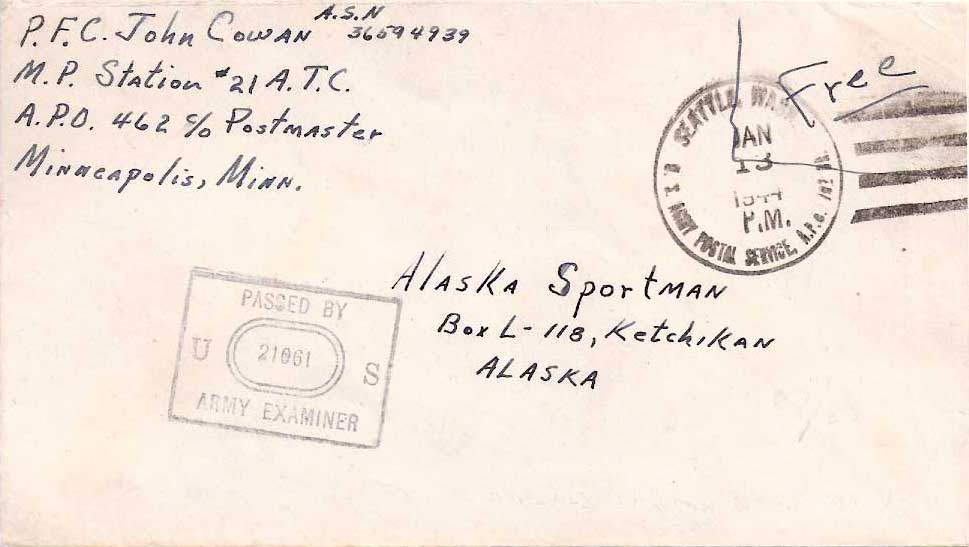 P.F.C. John Cowan A.S.N 36594939
M.P. Station #21 A.T.C.
A.P.O. 462 c/o Postmaster
Minneapolis, Minn.
Free
SEATTLE, WASH.
JAN
13
1944
P.M.
U.S. ARMY POSTAL SERVICE, A.P.O.
Alaska Sportman
Box L-118, Ketchikan
ALASKA
PASSED BY
U 21061 S
ARMY EXAMINER